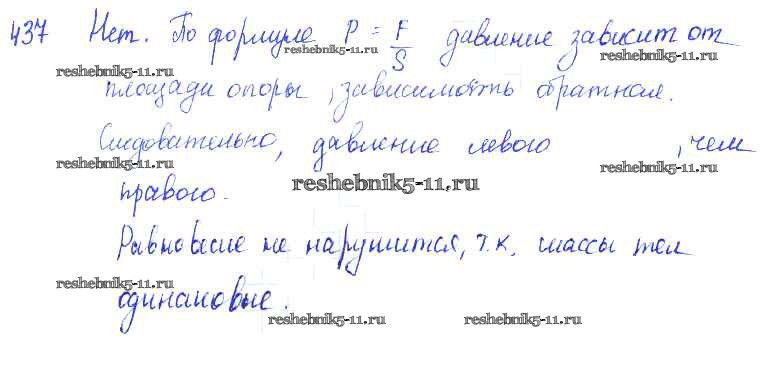 437 Нет. По формуле P = F/S давление зависит от
reshebnik5-11.ru
reshebnik5-11.ru reshebnik5-11.ru
площади опоры, зависимость обратная.
Следовательно, давление левого , чем
reshebnik5-11.ru reshebnik5-11.ru
правого. reshebnik5-11.ru
Равновесие не нарушится, т.к. массы тел
reshebnik5-11.ru
одинаковые.
reshebnik5-11.ru reshebnik5-11.ru